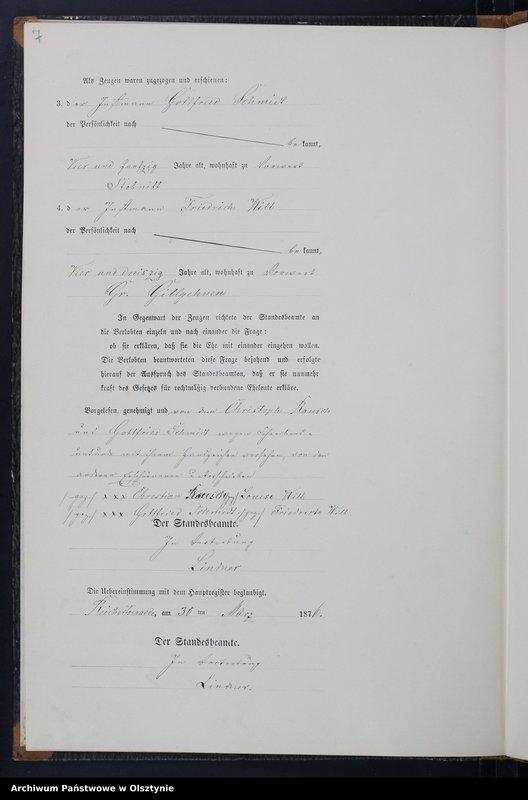 7
Als Zeugen waren zugezogen und erschienen:
3. der Instmann Gottfried Schmidt
der Persönlichkeit nach
bekannt,
Vier und funfzig Jahre alt, wohnhaft zu Vorwerk
4. der Instmann Friedrich Will
der Persönlichkeit nach
bekannt,
Vier und dreiszig Jahre alt, wohnhaft zu Vorwerk
Gr.
In Gegenwart der Zeugen richtete der Standesbeamte an
die Verlobten einzeln und nach einander die Frage:
ob sie erklären, daß sie die Ehe mit einander eingehen wollen.
Die Verlobten beantworteten diese Frage bejahend und erfolgte
hierauf der Ausspruch des Standesbeamten, daß er sie nunmehr
kraft des Gesetzes für rechtmäßig verbundene Eheleute erkläre.
Vorgelesen, genehmigt und von dem Christoph Rausch
und Gottfried Schmidt wegen Schreibens-
unkunde mit ihrem Handzeichen versehen, von den
anderen Erschienenen unterschrieben
/gez/ xxx Christian Rausch /gez/ Louise Will
/gez/ xxx Gottfried Schmidt /gez/ Friedrich Will
Der Standesbeamte.
In Vertretung
Lindner
Die Uebereinstimmung mit dem Hauptregister beglaubigt.
am 30 ten März 1876.
Der Standesbeamte.
In Vertretung
Lindner.
Archiwum Państwowe w Olsztynie